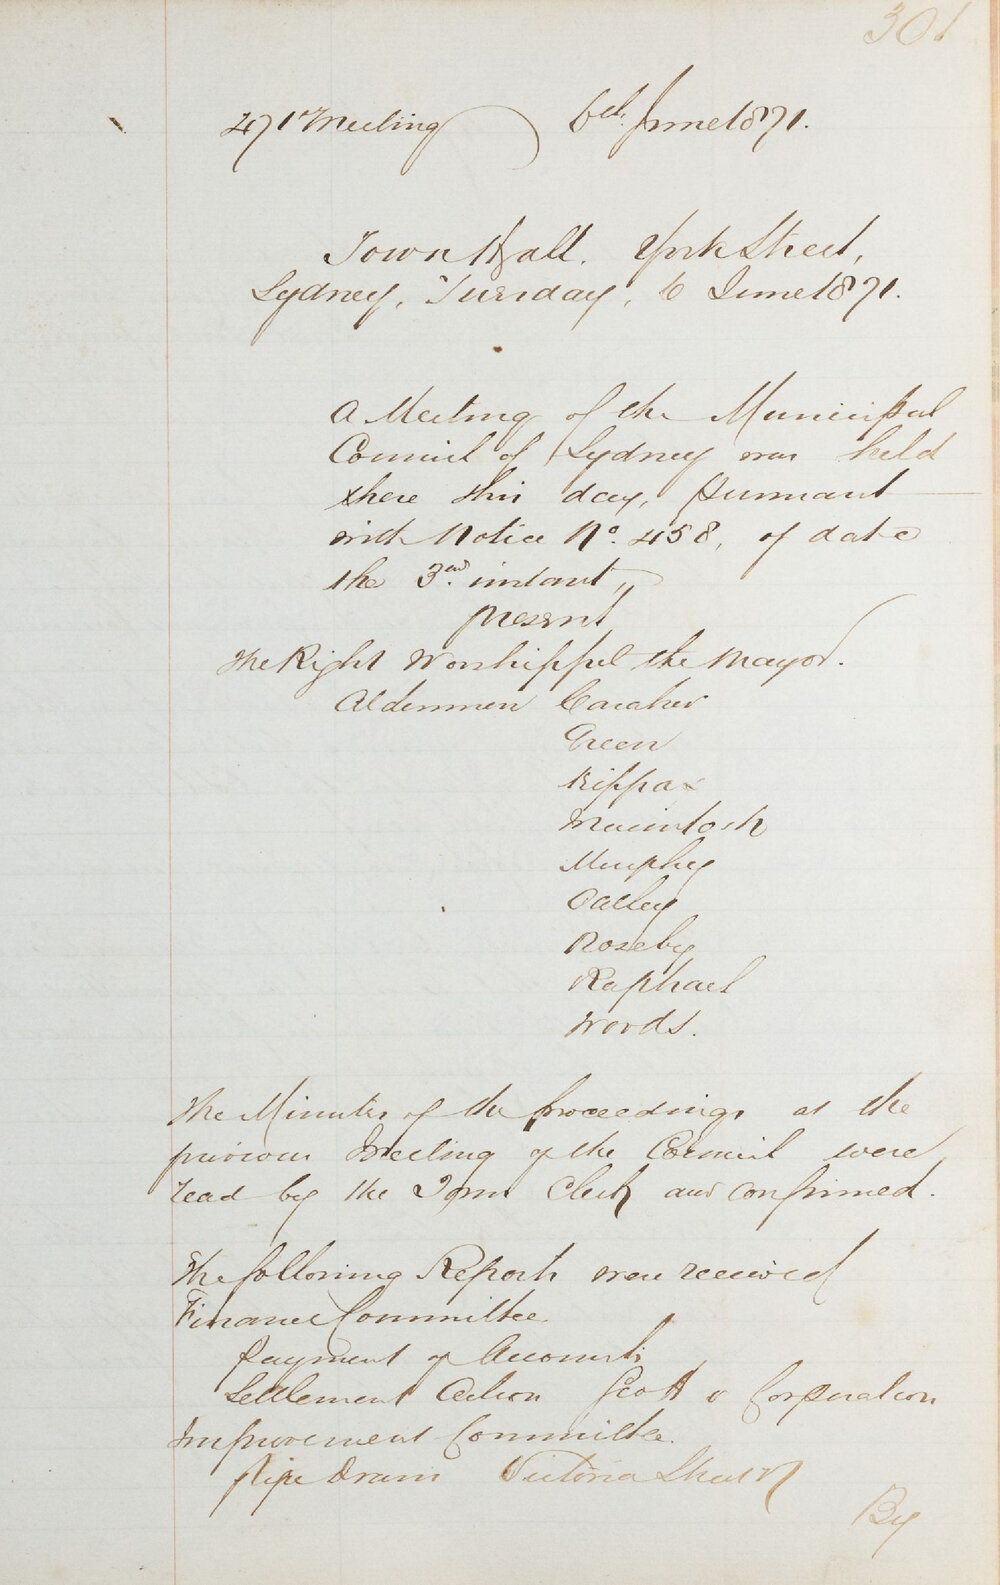 301
471st Meeting 6th June 1871.
Town Hall. York Street,
Sydney, Tuesday, 6 June 1871.
A Meeting of the Municipal
Council of Sydney was held
there this day, pursuant
with Notice No. 458, of date
the 3rd. instant,
present
The Right Worshipful the Mayor.
Aldermen Caraher
Green
Kippax
Macintosh
Murphy
Oatley
Roseby
Raphael
Woods.
The Minutes of the proceedings at the
previous Meeting of the Council were
read by the Town Clerk and confirmed.
The following Reports were received
Finance Committee
Payment of Accounts
Settlement Action Scott v Corporation
Improvement Committee.
Pipe Drain Victoria Street N
By